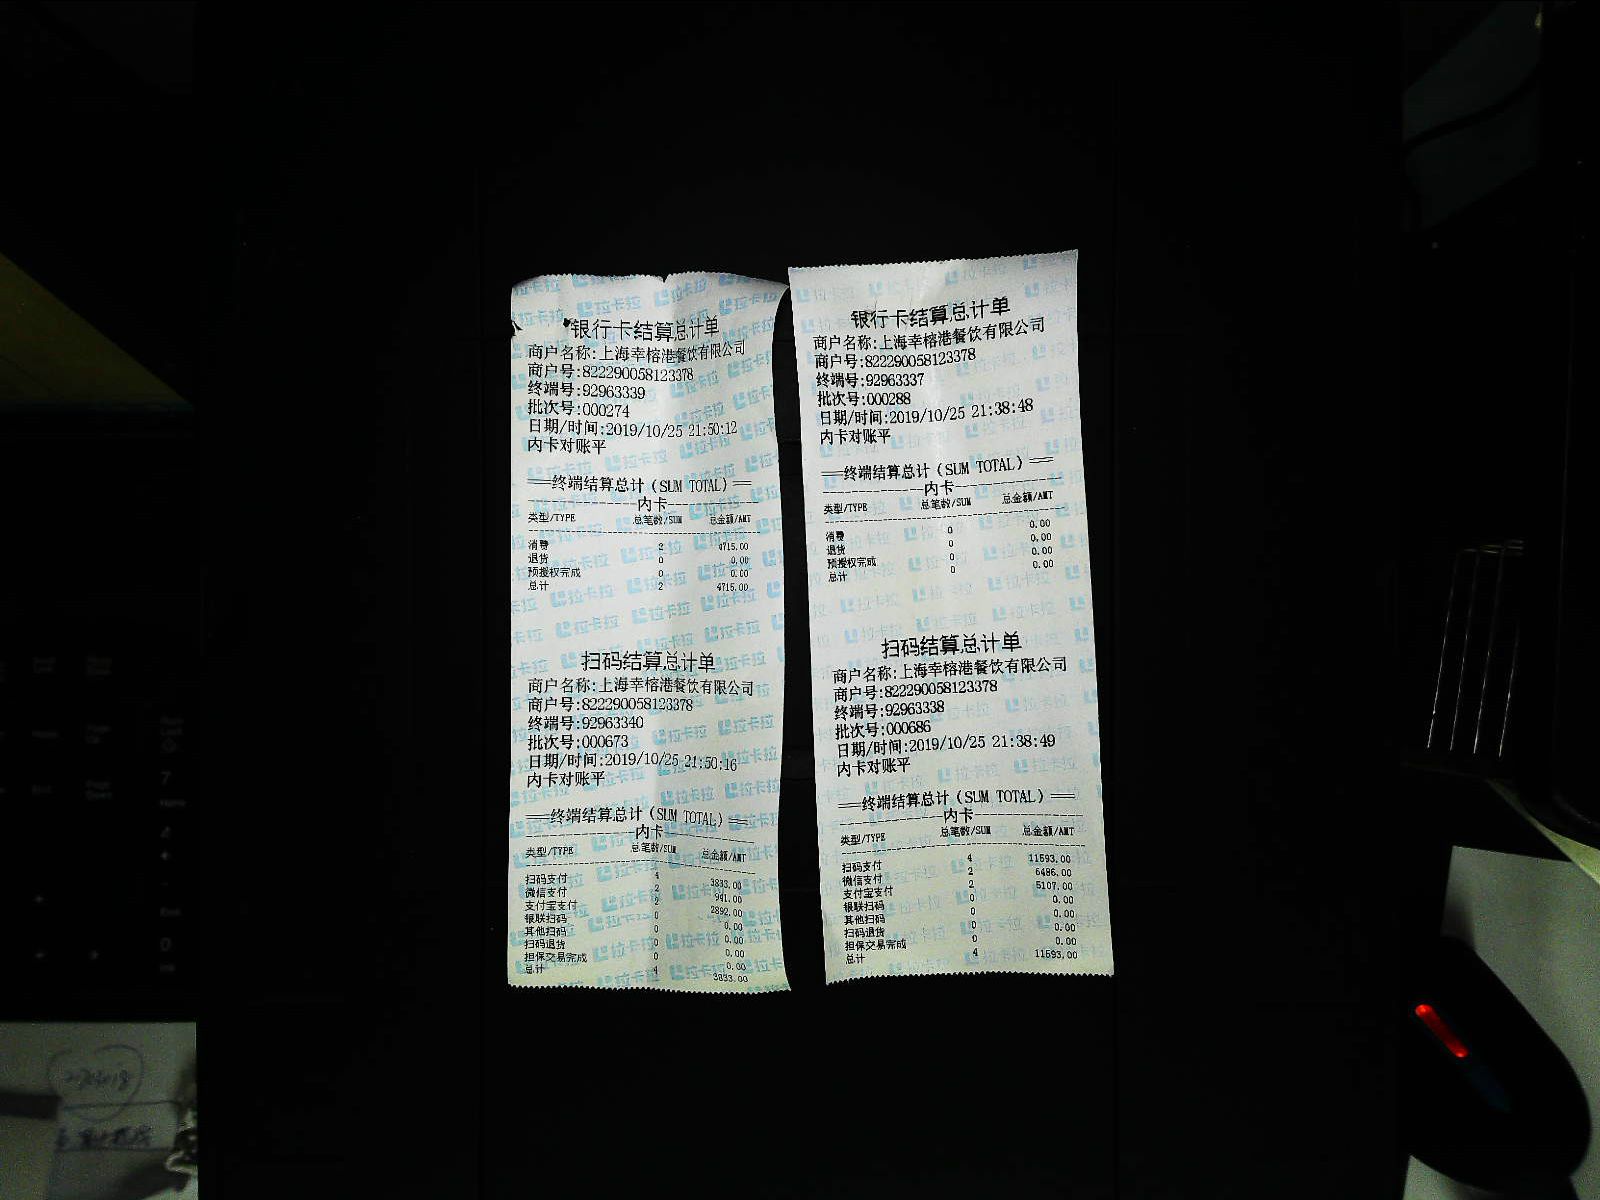 银行卡结算总计单
商户名称:上海幸榕港餐饮有限公司
商户号:822290058123378
终端号:92963339
批次号:000274
日期/时间:2019/10/25 21:50:12
内卡对账平
══终端结算总计(SUM TOTAL)══
内卡
类型/TYPE 总笔数/SUM 总金额/AMT
消费 2 4715.00
退货 0 0.00
预授权完成 0 0.00
总计 2 4715.00
扫码结算总计单
商户名称:上海幸榕港餐饮有限公司
商户号:822290058123378
终端号:92963340
批次号:000673
日期/时间:2019/10/25 21:50:16
内卡对账平
══终端结算总计(SUM TOTAL)══
内卡
类型/TYPE 总笔数/SUM 总金额/AMT
扫码支付 4 3833.00
微信支付 2 941.00
支付宝支付 2 2892.00
银联扫码 0 0.00
其他扫码 0 0.00
扫码退货 0 0.00
担保交易完成 0 0.00
总计 4 3833.00
银行卡结算总计单
商户名称:上海幸榕港餐饮有限公司
商户号:822290058123378
终端号:92963337
批次号:000288
日期/时间:2019/10/25 21:38:48
内卡对账平
══终端结算总计(SUM TOTAL)══
内卡
类型/TYPE 总笔数/SUM 总金额/AMT
消费 0 0.00
退货 0 0.00
预授权完成 0 0.00
总计 0 0.00
扫码结算总计单
商户名称:上海幸榕港餐饮有限公司
商户号:822290058123378
终端号:92963338
批次号:000686
日期/时间:2019/10/25 21:38:49
内卡对账平
══终端结算总计(SUM TOTAL)══
内卡
类型/TYPE 总笔数/SUM 总金额/AMT
扫码支付 4 11593.00
微信支付 2 6486.00
支付宝支付 2 5107.00
银联扫码 0 0.00
其他扫码 0 0.00
扫码退货 0 0.00
担保交易完成 0 0.00
总计 4 11593.00
拉卡拉